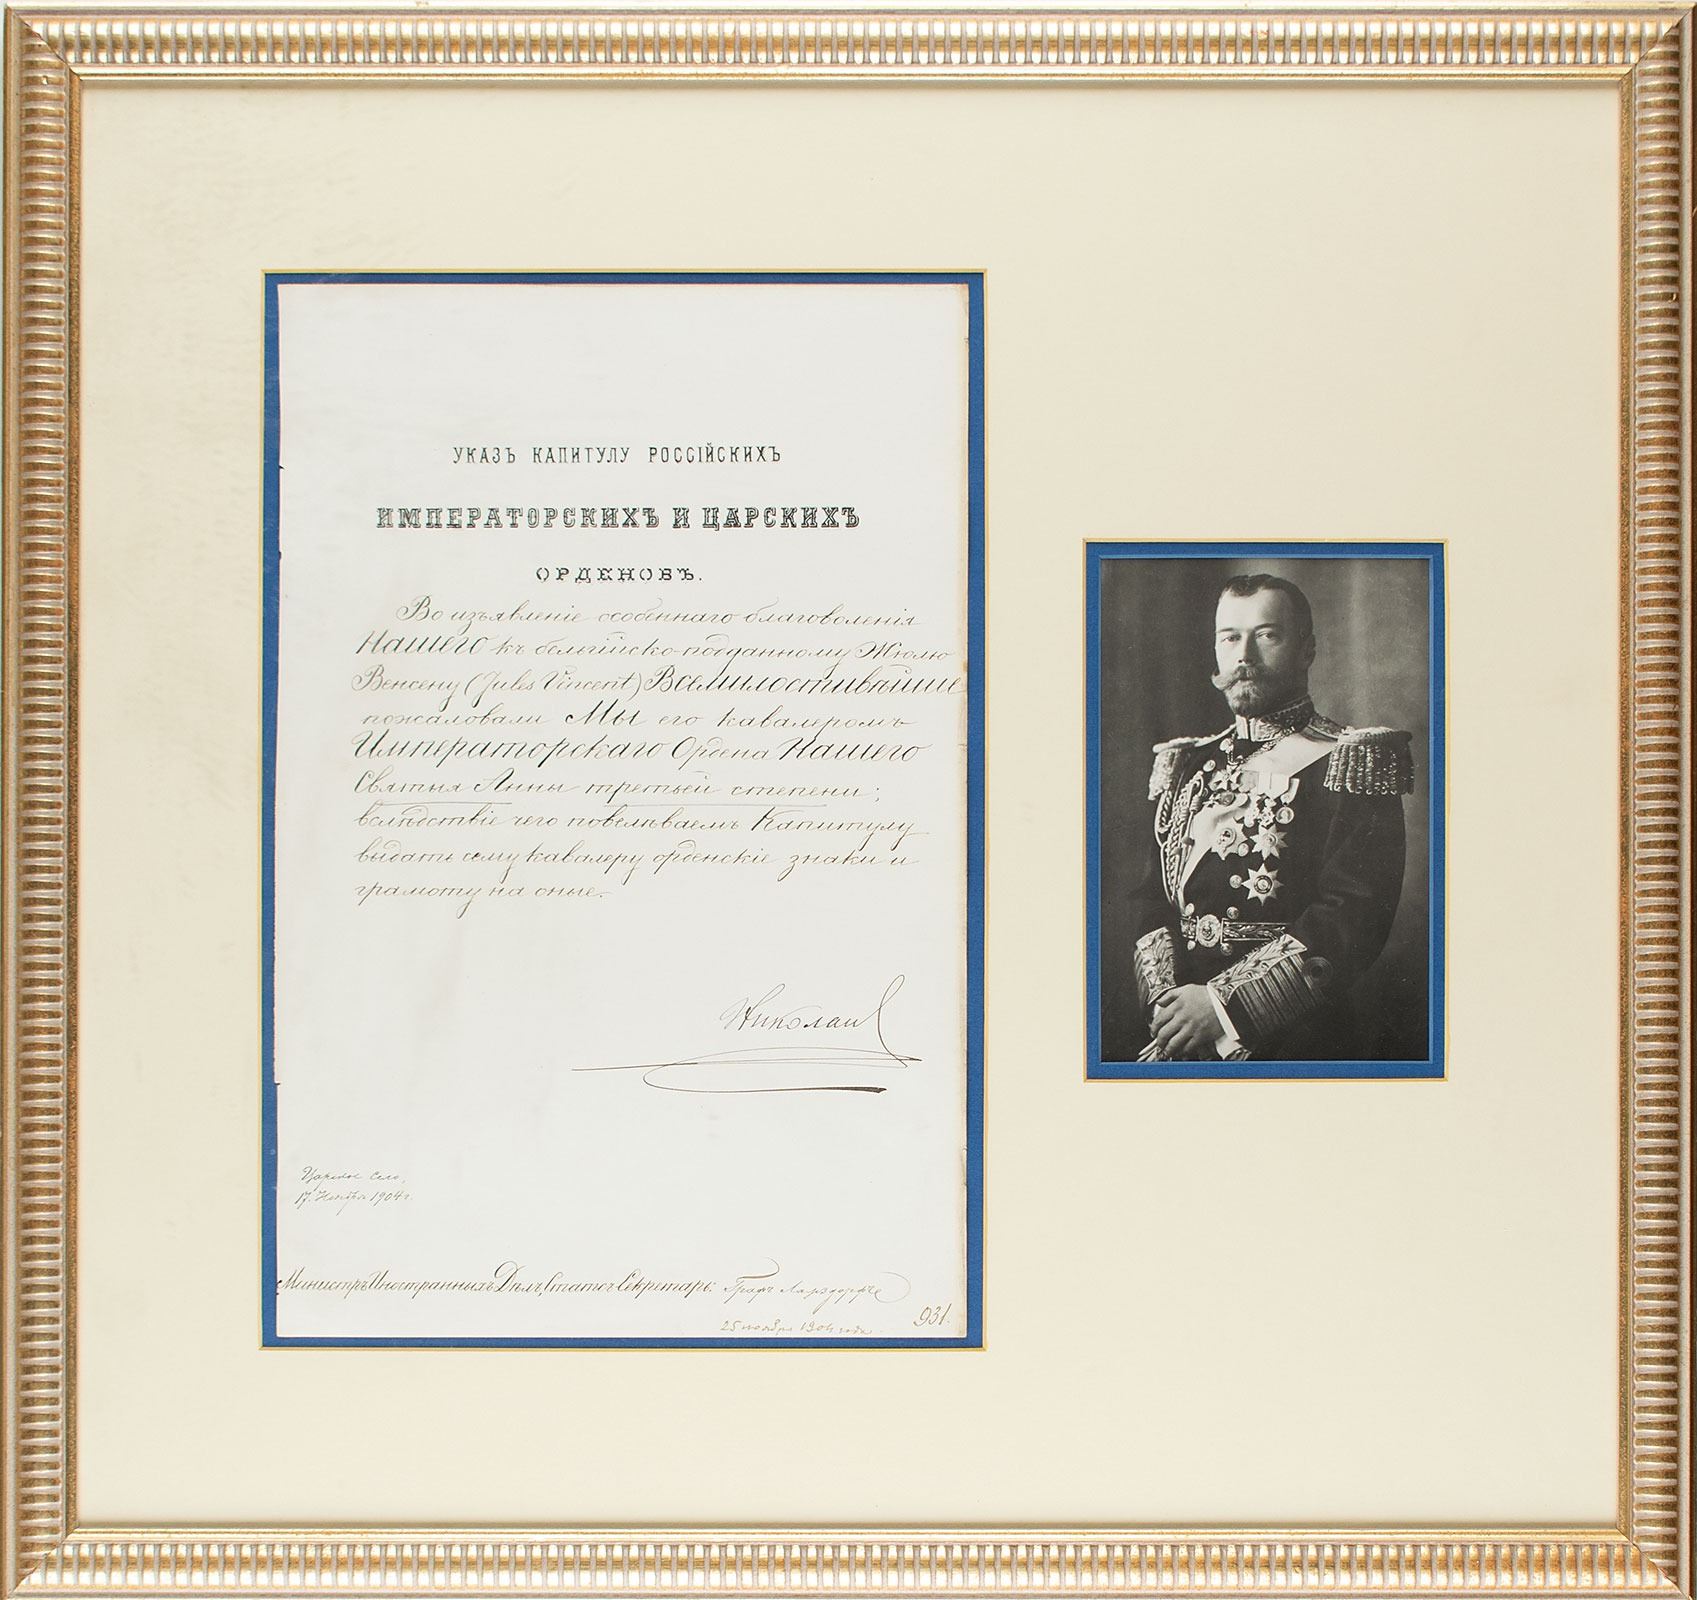 УКАЗЪ КАПИТУЛУ РОССІЙСКИХЪ
ИМПЕРАТОРСКИХЪ И ЦАРСКИХЪ
ОРДЕНОВЪ.
Во изъявленіе особеннаго благоволенія
Нашего къ бельгійско-подданному Жюлю
Венсену (Jules Vincent) Всемилостивѣйше
пожаловали Мы его кавалеромъ
Императорскаго Ордена Нашего
Святыя Анны третьей степени;
вслѣдствіе чего повелѣваемъ Капитулу
выдать сему кавалеру орденскіе знаки и
грамоту на оные.
Николай
Царское Село,
17. Ноября 1904 г.
Министръ Иностранныхъ Дѣлъ, Статсъ-Секретарь: Графъ Ламздорфъ
25 ноября 1904 года.
931.